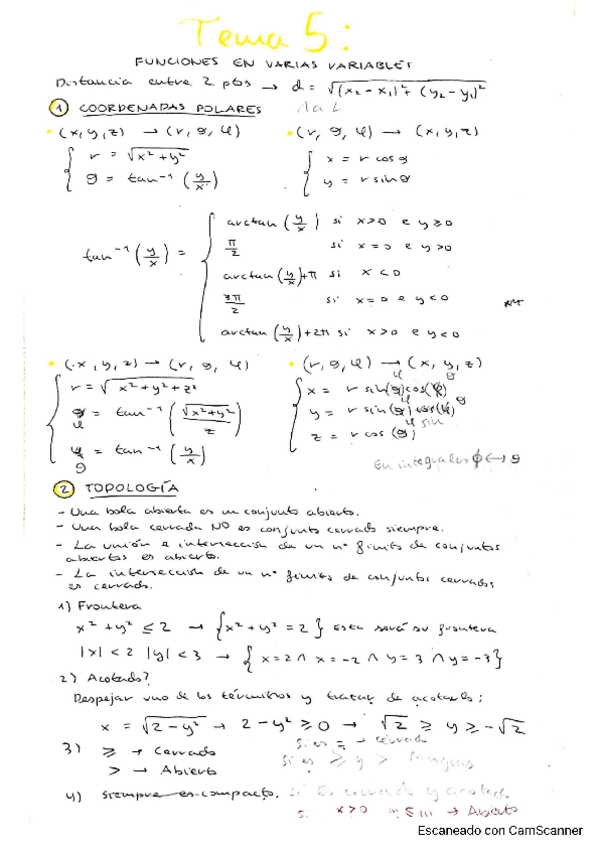 Tema 5:
FUNCIONES EN VARIAS VARIABLES
Distancia entre 2 ptos → d = √((x₂ - x₁)² + (y₂ - y₁)²
① COORDENADAS POLARES
• (x, y, z) → (r, θ, φ) • (r, θ, φ) → (x, y, z)
r = √(x² + y²) x = r cos θ
θ = tan⁻¹ (y/x) y = r sin θ
tan⁻¹ (y/x) =
arctan (y/x) si x>0 e y≥0
π/2 si x=0 e y>0
arctan (y/x)+π si x<0
3π/2 si x=0 e y<0
arctan (y/x)+2π si x>0 e y<0
• (x, y, z) → (r, θ, φ) • (r, θ, φ) → (x, y, z)
r = √(x² + y² + z²) x = r sin(θ) cos(φ)
φ = tan⁻¹ (√(x²+y²)/z) y = r sin(θ) cos(φ) sin
θ = tan⁻¹ (y/x) z = r cos(θ)
En integrales φ ↔ θ
② TOPOLOGÍA
- Una bola abierta es un conjunto abierto.
- Una bola cerrada NO es conjunto cerrado siempre.
- La unión e intersección de un nº finito de conjuntos
abiertos es abierto.
- La intersección de un nº finito de conjuntos cerrados
es cerrado.
1) Frontera
x² + y² ≤ 2 → {x² + y² = 2} Esta será su frontera
|x| < 2 |y| < 3 → {x=2 ∧ x=-2 ∧ y=3 ∧ y=-3}
2) Acotado?
Despejar uno de los términos y tratar de acotarlo:
x = √(2-y²) → 2-y² ≥ 0 → √2 ≥ y ≥ -√2
3) ≥ → Cerrado si es = → cerrado
> → Abierto si es ≥ y > ninguno
4) siempre es compacto. si es cerrado y acotado
x>0 → Abierto
Escaneado con CamScanner